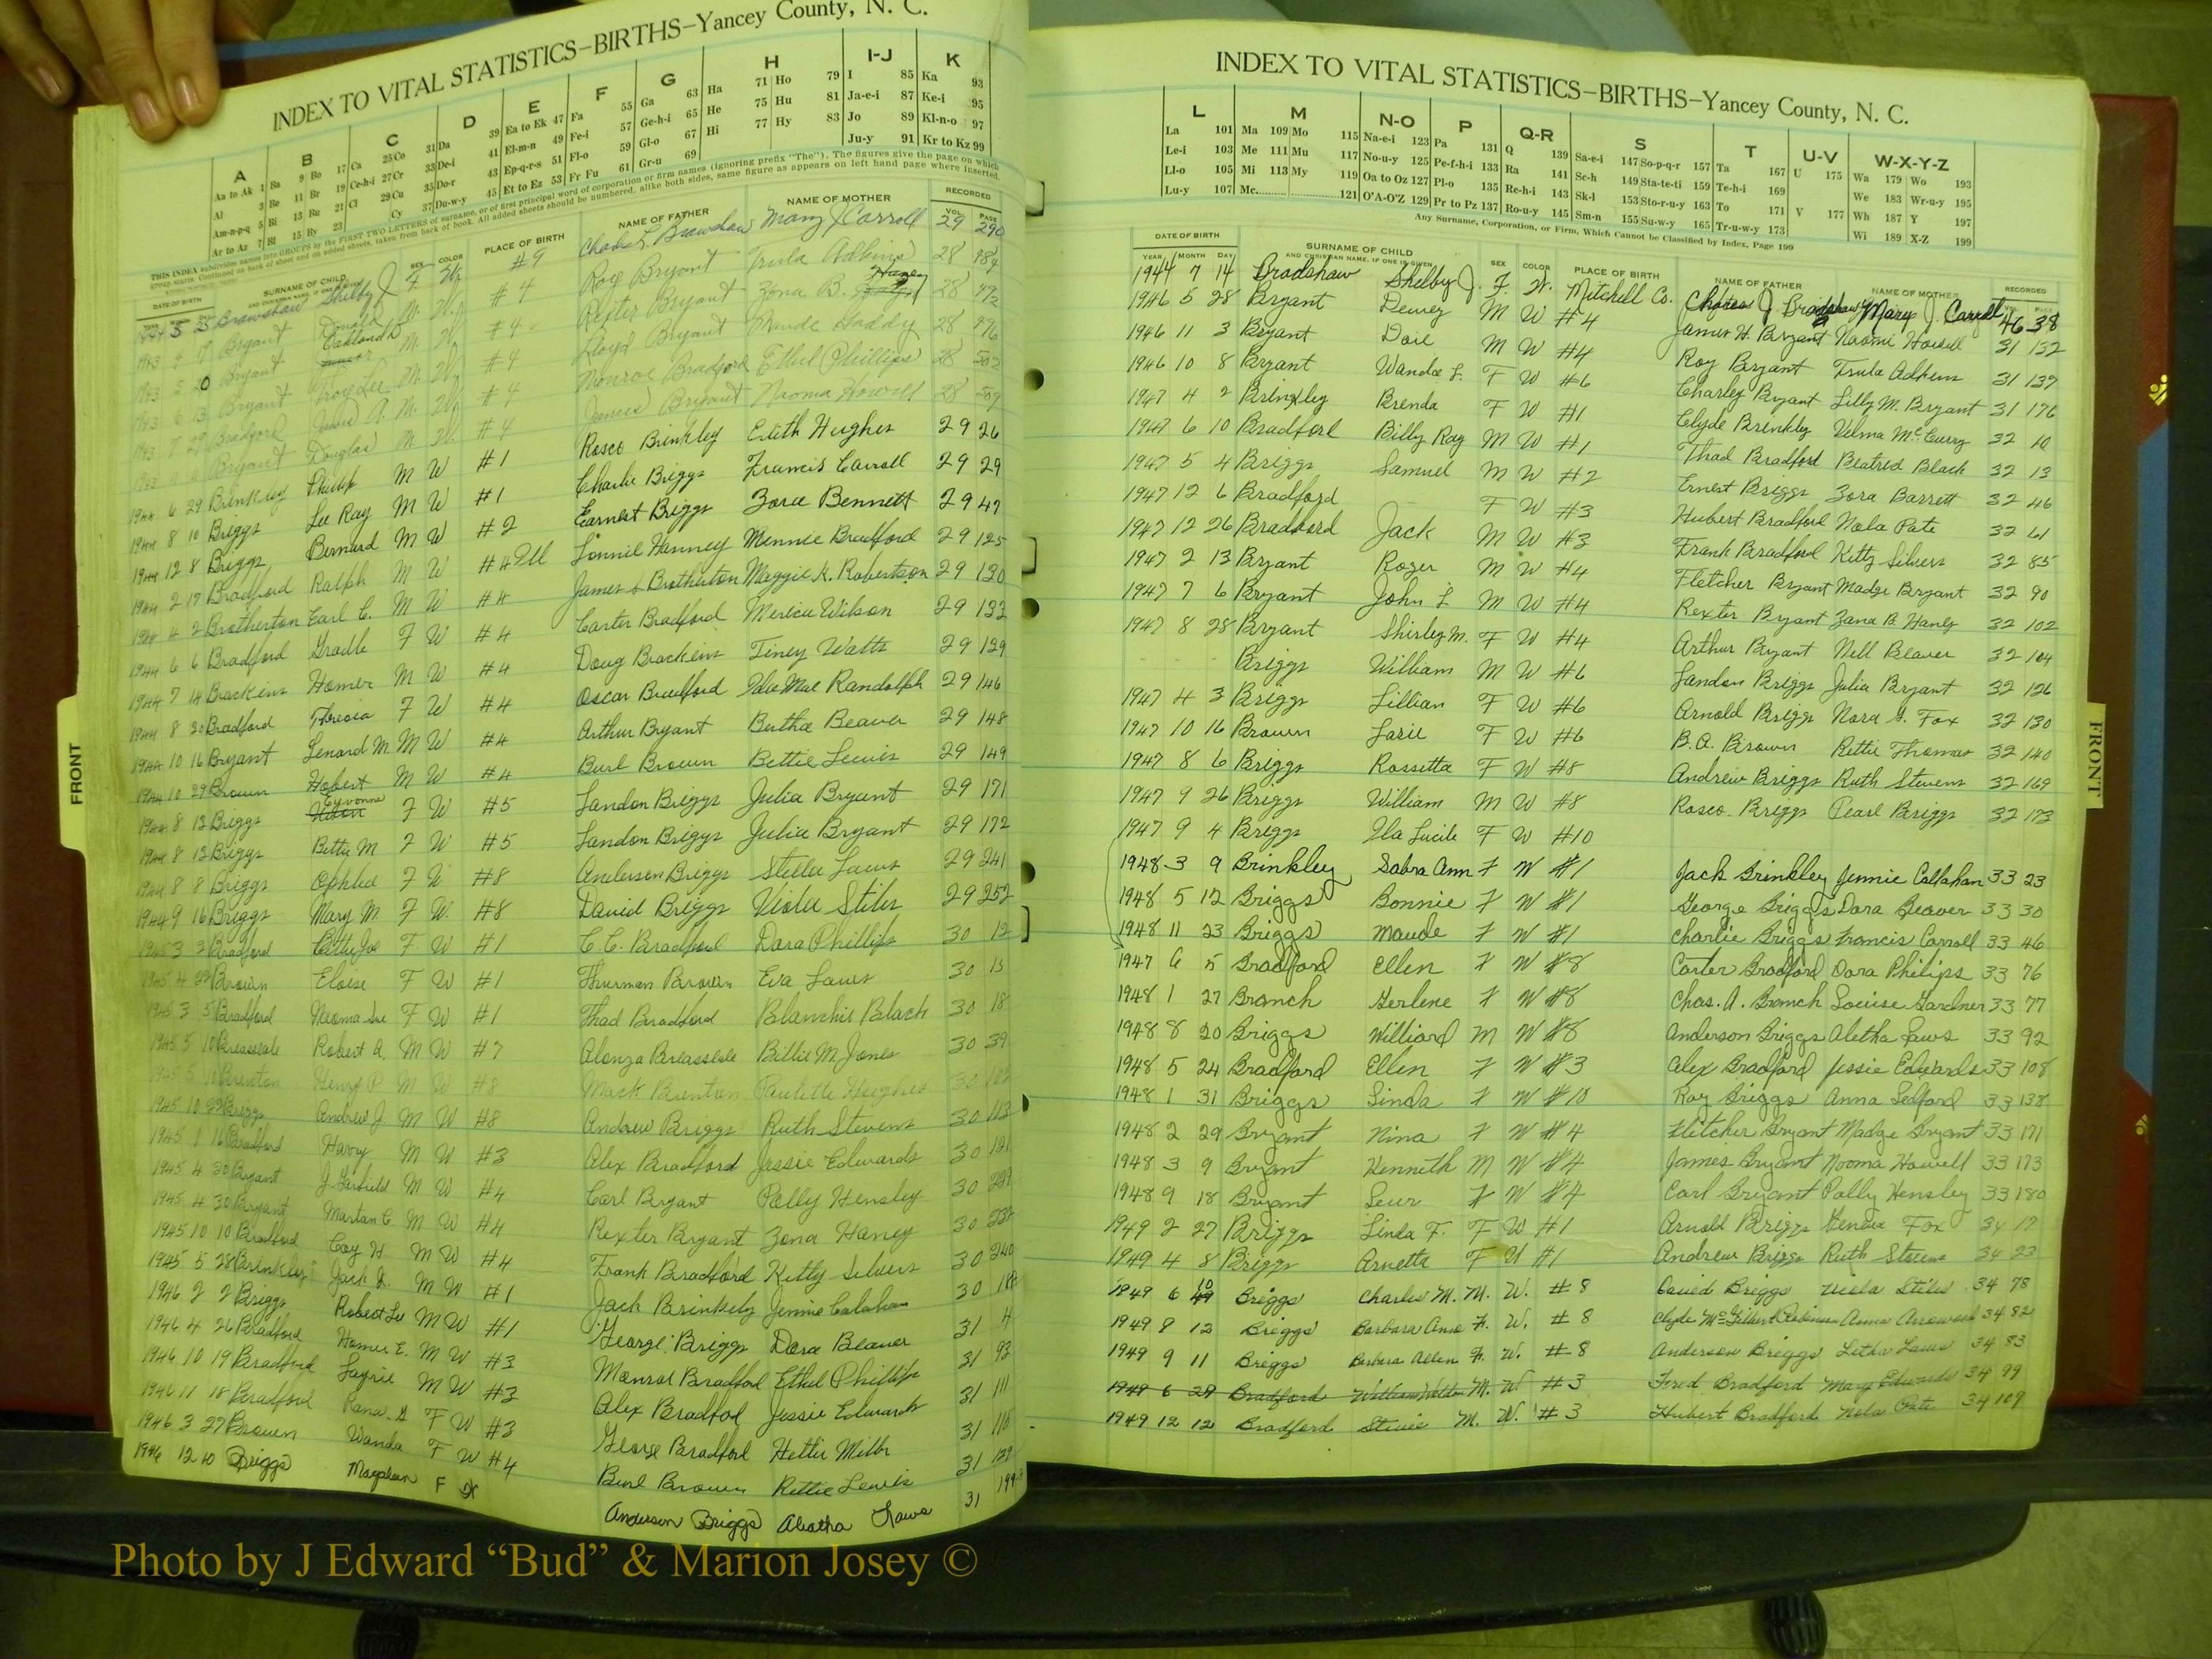 INDEX TO VITAL STATISTICS—BIRTHS—Yancey County, N. C.
A B C D E F G H I-J K
Aa to Ak 1 Ba 9 Bo 17 Ca 25 Co 31 Da 39 Ea to Ek 47 Fa 55 Ga 63 Ha 71 Ho 79 I 85 Ka 93
Al 3 Be 11 Br 19 Ce-h-i 27 Cr 33 De-i 41 El-m-n 49 Fe-i 57 Ge-h-i 65 He 75 Hu 81 Ja-e-i 87 Ke-i 95
Am-n-p-q 5 Bi 13 Bu 21 Cl 29 Cu 35 Do-r 43 Ep-q-r-s 51 Fl-o 59 Gl-o 67 Hi 77 Hy 83 Jo 89 Kl-n-o 97
Ar to Az 7 Bl 15 By 23 Cy 37 Du-w-y 45 Et to Ez 53 Fr Fu 61 Gr-u 69 Ju-y 91 Kr to Kz 99
THIS INDEX subdivides names into GROUPS by the FIRST TWO LETTERS of surname, or of first principal word of corporation or firm names (ignoring prefix "The"). The figures give the page on which
group starts. Continued on back of sheet and on added sheets, taken from back of book. All added sheets should be numbered, alike both sides, same figure as appears on left hand page where inserted.
DATE OF BIRTH SURNAME OF CHILD SEX COLOR PLACE OF BIRTH NAME OF FATHER NAME OF MOTHER RECORDED
AND CHRISTIAN NAME, IF ONE IS GIVEN VOL. PAGE
5 25 Brawshaw Shelby J F W #9 Brawshaw Mary J Carroll 29 290
1943 Bryant Donald M. W. #4 Roy Bryant Trula Adkins 28
1943 Bryant Oakland D M. W. #4 Rexter Bryant Zona B. Haney 28
1943 Bryant Troy Lee M. W. #4 Floyd Bryant Maude Gaddy 28
1943 Bradford M. W. #4 Monroe Bradford Ethel Phillips 28
1943 Bryant Douglas M W. #4 James Bryant Naoma Howell 28
1944 6 29 Brinkley Philip M W #1 Rosco Brinkley Edith Hughes 29 26
1944 8 10 Briggs Lee Ray M W #1 Charlie Briggs Francis Carroll 29 29
1944 12 8 Briggs Bernard M W #2 Earnest Briggs Zora Bennett 29 47
1944 2 17 Bradford Ralph M W #4 Lonnie Hanney Mennie Bradford 29 125
4 2 Brotherton Earl C. M W #4 James S Brotherton Maggie K. Robertson 29 130
1944 6 6 Bradford F W #4 Carter Bradford Wilson 29 133
1944 7 14 Brackins Homer M W #4 Doug Brackins Tiney Watts 29 139
1944 8 30 Bradford F W #4 Oscar Bradford Mae Randolph 29 146
1944 10 16 Bryant Lenard M. M W #4 Arthur Bryant Bertha Beaver 29 148
1944 10 29 Brown Hobert M W #4 Burl Brown Bettie Lewis 29 149
1944 8 13 Briggs Evvonne F W #5 Landon Briggs Julia Bryant 29 171
1944 8 13 Briggs Betty M F W #5 Landon Briggs Julia Bryant 29 172
1944 8 8 Briggs Ophlia F W #8 Anderson Briggs Laws 29 241
1944 9 16 Briggs Mary M. F W. #8 David Briggs Viola Stiles 29 252
1945 3 2 Bradford Betty Joe F W #1 C. C. Bradford Dora Phillips 30 12
1945 4 Brown Eloise F W #1 Thurman Brown Eva Laws 30 15
1945 3 5 Bradford Naoma Sue F W #1 Thad Bradford Blanchie Black 30 18
1945 5 10 Robert A. M W #7 Alonza Billie M. Jones 30 39
1945 5 Brenton Henry P M W #8 Mack Brenton Paulette Hughes 30
1945 10 Briggs Andrew J M W #8 Andrew Briggs Ruth Stevens 30 113
1945 1 16 Bradford Harvy M W #3 Alex Bradford Jessie Edwards 30 121
1945 4 30 Bryant J Garfield M W #4 Carl Bryant Polly Hensley 30
1945 4 30 Bryant Martan C M W #4 Rexter Bryant Zona Haney 30
1945 10 10 Bradford Coy H M W #4 Frank Bradford Kitty Silvers 30 240
1945 5 28 Brinkley Jack Jr. M W #1 Jack Brinkely Jennie Calahan 30
1946 2 2 Briggs Robert Lee M W #1 George Briggs Dora Beaver 31 4
1946 4 26 Bradford Homer E. M W #3 Monroe Bradford Ethel Phillips 31 93
1946 10 19 Bradford M W #3 Alex Bradford Jessie Edwards 31 111
1946 11 18 Bradford F W #3 George Bradford Hettie Miller 31 115
1946 3 27 Brown Wanda F W #4 Burl Brown Rettie Lewis 31 139
1946 12 10 Briggs Magalean F W Anderson Briggs Alatha Laws 31
FRONT
INDEX TO VITAL STATISTICS—BIRTHS—Yancey County, N. C.
L M N-O P Q-R S T U-V W-X-Y-Z
La 101 Ma 109 Mo 115 Na-e-i 123 Pa 131 Q 139 Sa-e-i 147 So-p-q-r 157 Ta 167 U 175 Wa 179 Wo 193
Le-i 103 Me 111 Mu 117 No-u-y 125 Pe-f-h-i 133 Ra 141 Sc-h 149 Sta-te-ti 159 Te-h-i 169 We 183 Wr-u-y 195
Ll-o 105 Mi 113 My 119 Oa to Oz 127 Pl-o 135 Re-h-i 143 Sk-l 153 Sto-r-u-y 163 To 171 V 177 Wh 187 Y 197
Lu-y 107 Mc 121 O'A-O'Z 129 Pr to Pz 137 Ro-u-y 145 Sm-n 155 Su-w-y 165 Tr-u-w-y 173 Wi 189 X-Z 199
Any Surname, Corporation, or Firm, Which Cannot be Classified by Index, Page 199
DATE OF BIRTH SURNAME OF CHILD SEX COLOR PLACE OF BIRTH NAME OF FATHER NAME OF MOTHER RECORDED
YEAR MONTH DAY AND CHRISTIAN NAME, IF ONE IS GIVEN
1944 7 14 Bradshaw Shelby J. F. W. Mitchell Co. Charles J. Bradshaw Mary J. Carroll 46 38
1946 5 28 Bryant Dewey M W #4 James H. Bryant Naomi Howell 31 132
1946 11 3 Bryant Doie M W #4 Roy Bryant Trula Adkins 31 137
1946 10 8 Bryant Wanda L. F W #6 Charley Bryant Lilly M. Bryant 31 176
1947 4 2 Brinkley Brenda F W #1 Clyde Brinkley Velma McCurry 32 10
1947 6 10 Bradford Billy Ray M W #1 Thad Bradford Beatred Black 32 13
1947 5 4 Briggs Samuel M W #2 Ernest Briggs Zora Barrett 32 46
1947 12 6 Bradford F W #3 Hubert Bradford Nola Pate 32 61
1947 12 26 Bradford Jack M W #3 Frank Bradford Kitty Silvers 32 85
1947 2 13 Bryant Roger M W #4 Fletcher Bryant Madge Bryant 32 90
1947 7 6 Bryant John L M W #4 Rexter Bryant Zana B. Haney 32 102
1947 8 28 Bryant Shirley M. F W #4 Arthur Bryant Nell Beaver 32 104
Briggs William M W #6 Landon Briggs Julia Bryant 32 126
1947 4 3 Briggs Lillian F W #6 Arnold Briggs Nora G. Fox 32 130
1947 10 16 Brown Larie F W #6 B. A. Brown Rettie Thomas 32 140
1947 8 6 Briggs Rossetta F W #8 Andrew Briggs Ruth Stevens 32 169
1947 9 26 Briggs William M W #8 Rosco Briggs Pearl Briggs 32 173
1947 9 4 Briggs Ila Lucile F W #10
1948 3 9 Brinkley Sabra Ann F W #1 Jack Brinkley Jennie Callahan 33 23
1948 5 12 Briggs Bonnie F W #1 George Briggs Dora Beaver 33 30
1948 11 23 Briggs Maude F W #1 Charlie Briggs Francis Carroll 33 46
1947 6 5 Bradford Ellen F W #8 Carter Bradford Dora Philips 33 76
1948 1 27 Branch Gerlene F W #8 Chas. A. Branch Louise Gardner 33 77
1948 8 20 Briggs Williard M W #8 Anderson Briggs Aletha Laws 33 92
1948 5 24 Bradford Ellen F W #3 Alex Bradford Jessie Edwards 33 108
1948 1 31 Briggs Linda F W #10 Roy Briggs Anna Ledford 33 138
1948 2 29 Bryant Nina F W #4 Fletcher Bryant Madge Bryant 33 171
1948 3 9 Bryant Kenneth M W #4 James Bryant Nooma Howell 33 173
1948 9 18 Bryant Leur F W #4 Carl Bryant Polly Hensley 33 180
1949 2 27 Briggs Linda F. F W #1 Arnold Briggs Geneva Fox 34 17
1949 4 8 Briggs Arnetta F W #1 Andrew Briggs Ruth Stevens 34 23
1949 6 10 Briggs Charles M. M. W. #8 David Briggs Viola Stiles 34 78
1949 8 12 Briggs Barbara Ann F. W. #8 Clyde McGilbert Robinson Anna Arrowood 34 82
1949 9 11 Briggs Barbara Allen F. W. #8 Anderson Briggs Letha Laws 34 83
1949 6 29 Bradford William Walter M. W #3 Fred Bradford Mary Edwards 34 99
1949 12 12 Bradford Stevie M. W. #3 Hubert Bradford Nola Pate 34 109
FRONT
Photo by J Edward “Bud” & Marion Josey ©